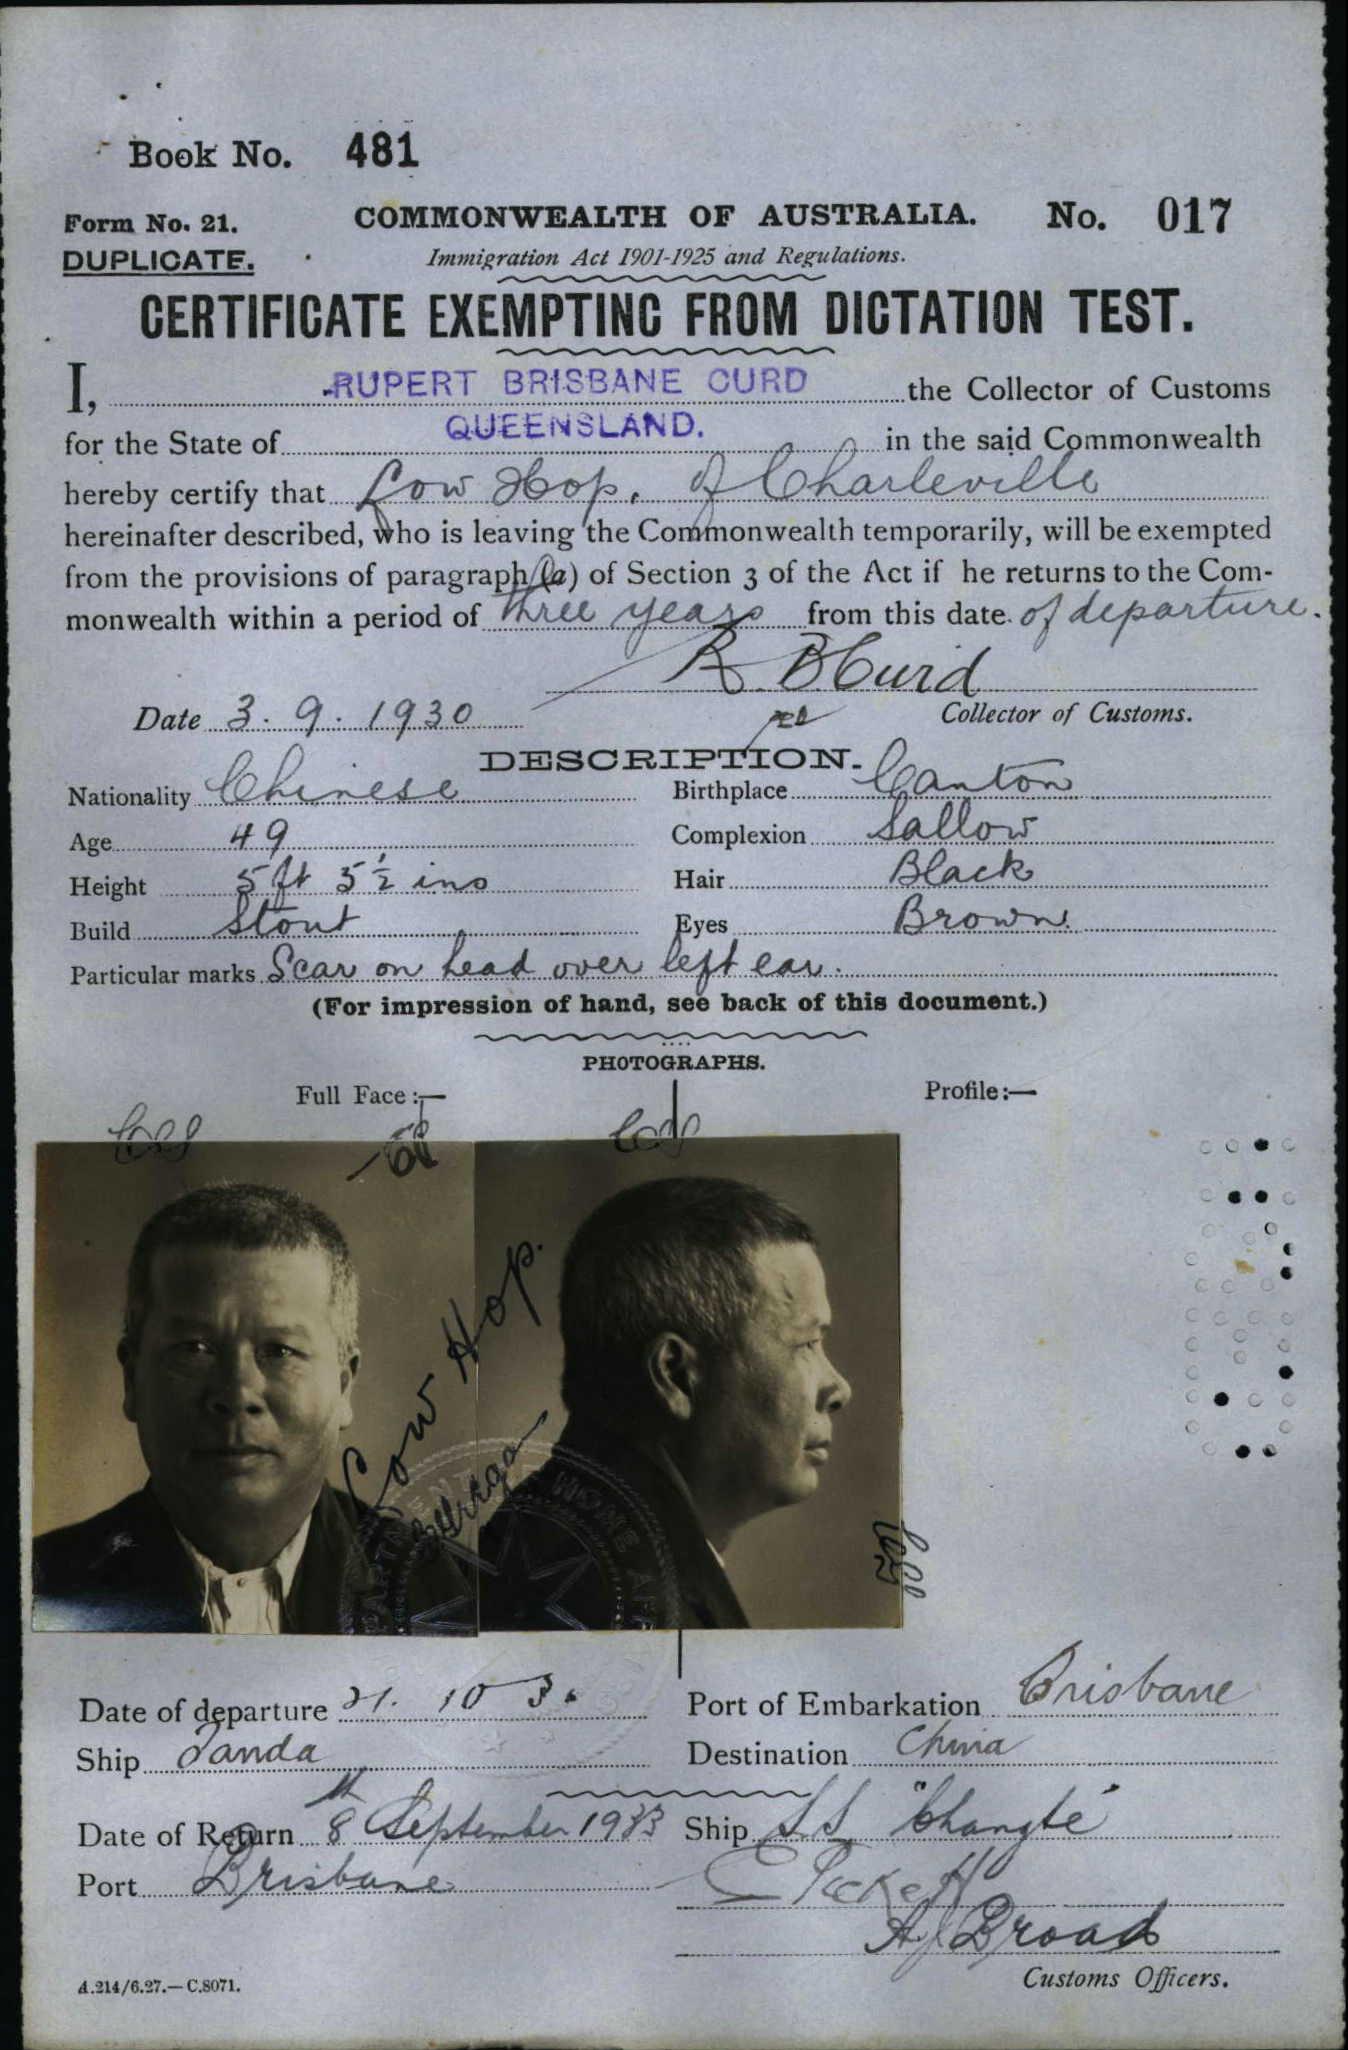 Book No. 481
Form No. 21. COMMONWEALTH OF AUSTRALIA. No. 017
DUPLICATE. Immigration Act 1901-1925 and Regulations.
CERTIFICATE EXEMPTING FROM DICTATION TEST.
I, RUPERT BRISBANE CURD the Collector of Customs
for the State of QUEENSLAND. in the said Commonwealth
hereby certify that Low Hop. of Charleville
hereinafter described, who is leaving the Commonwealth temporarily, will be exempted
from the provisions of paragraph (a) of Section 3 of the Act if he returns to the Com-
monwealth within a period of three years from this date of departure.
R. B. Curd
Date 3. 9. 1930 Collector of Customs.
DESCRIPTION.
Nationality Chinese Birthplace Canton
Age 49 Complexion Sallow
Height 5 ft 5½ ins Hair Black
Build Stout Eyes Brown.
Particular marks Scar on head over left ear.
(For impression of hand, see back of this document.)
PHOTOGRAPHS.
Full Face:— Profile:—
Low Hop.
Date of departure 21. 10 30 Port of Embarkation Brisbane
Ship Tanda Destination China
Date of Return 8th September 1933 Ship S.S. "Changte"
Port Brisbane
A J Broad
Customs Officers.
A.214/6.27.—C.8071.